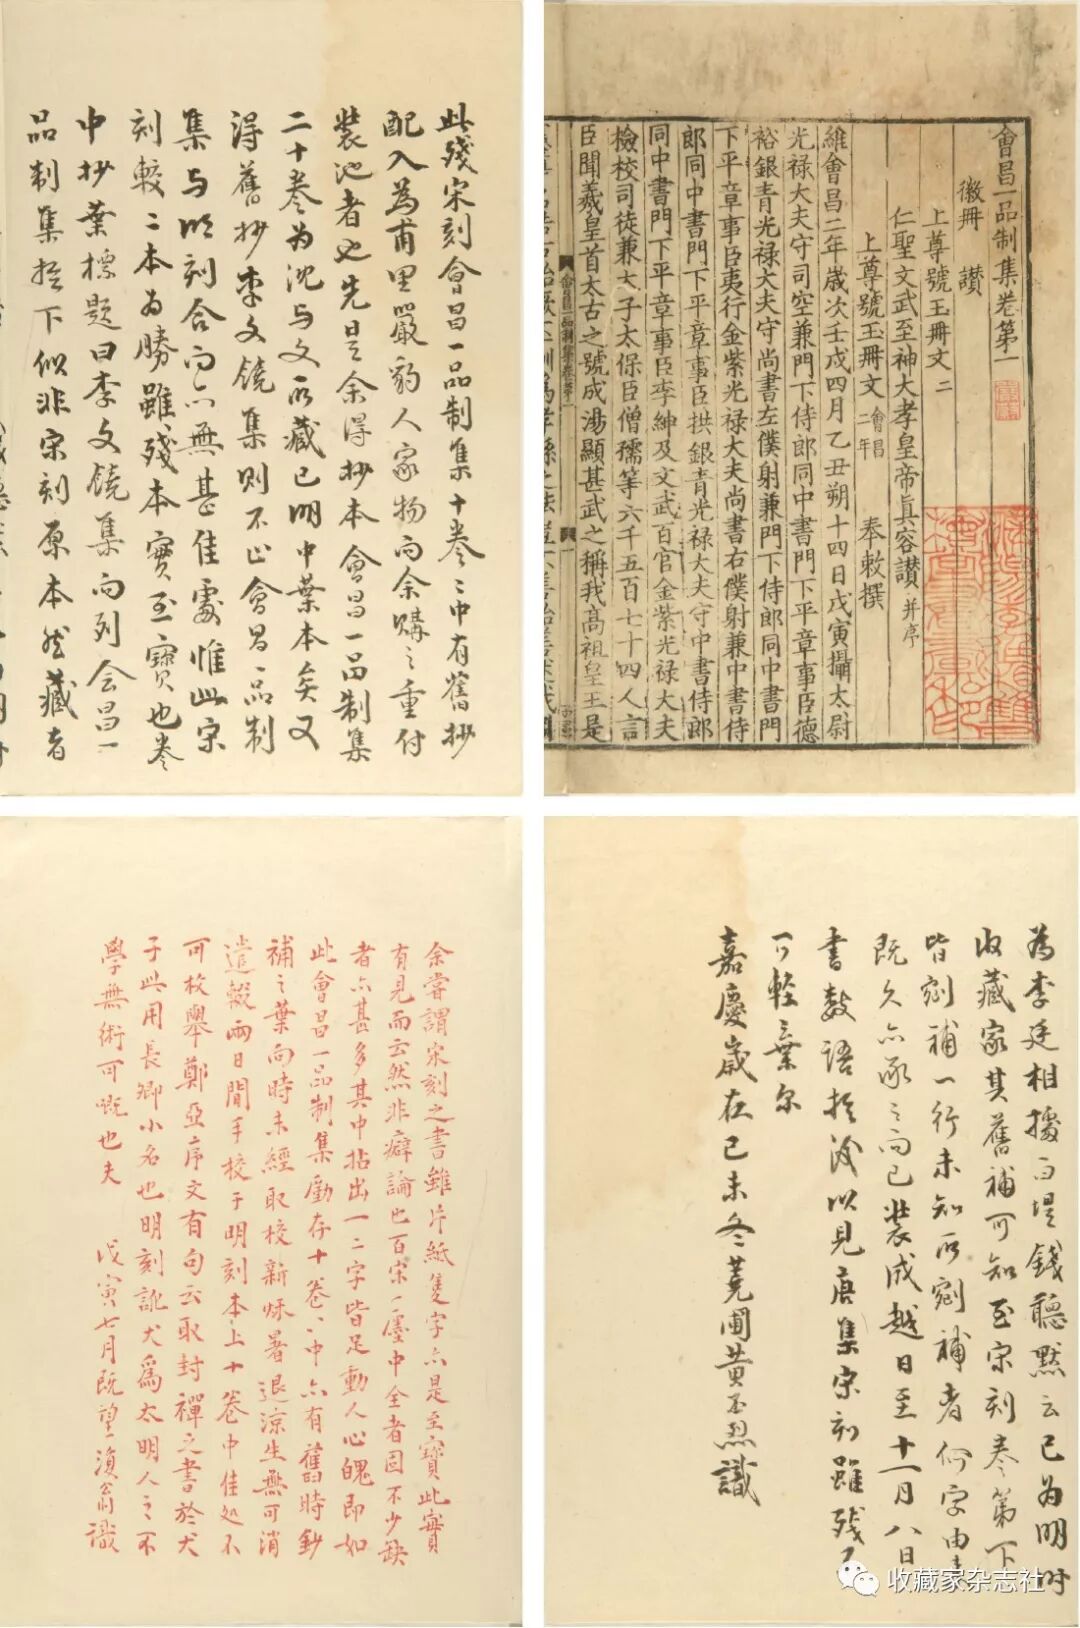 會昌一品制集卷第一
徽冊 讃
上尊號玉冊文二
仁聖文武至神大孝皇帝真容讃并序
上尊號玉冊文會昌二年 奉敕撰
維會昌二年歲次壬戌四月乙丑朔十四日戊寅攝太尉
光禄大夫守司空兼門下侍郎同中書門下平章事臣德
裕銀青光禄大夫守尚書左僕射兼門下侍郎同中書門
下平章事臣夷行金紫光禄大夫尚書右僕射兼中書侍
郎同中書門下平章事臣拱銀青光禄大夫守中書侍郎
同中書門下平章事臣李紳及文武百官金紫光禄大夫
檢校司徒兼太子太保臣僧孺等六千五百七十四人言
臣聞羲皇首太古之號成湯顯甚武之稱我髙祖皇王是
此殘宋刻會昌一品制集十卷〻中有舊抄
配入為甫里嚴豹人家物向余購之重付
裝池者也先是余得抄本會昌一品制集
二十卷为沈与文所藏已明中葉本矣又
得舊抄李文饒集則不止會昌一品制
集与明刻合而亦無甚佳處惟此宋
刻較二本為勝雖殘本實至寶也卷
中抄葉標題曰李文饒集而列会昌一
品制集於下似非宋刻原本然藏者
為李廷相據百堤錢聽默云已为明时
收藏家其舊補可知至宋刻卷第下
皆剜補一行未知所剜補者何字由來
既久亦承之而已裝成越日至十一月八日
書數語於後以見唐集宋刻雖殘不
可輕棄尔
嘉慶歲在己未冬蕘圃黃丕烈識
余嘗謂宋刻之書雖片紙隻字亦是至寶此實
有見而云然非癖論也百宋一廛中全者固不少缺
者亦甚多其中拈出一二字皆足動人心魄即如
此會昌一品制集勵存十卷〻中亦有舊時鈔
補之葉向時未經取校新秌暑退涼生無可消
遣輟兩日間手校于明刻本上十卷中佳処不
可枚舉鄭亞序文有句云取封禪之書於犬
子此用長卿小名也明刻訛犬為太明人之不
學無術可嘅也夫 戊寅七月既望復翁識
收藏家杂志社